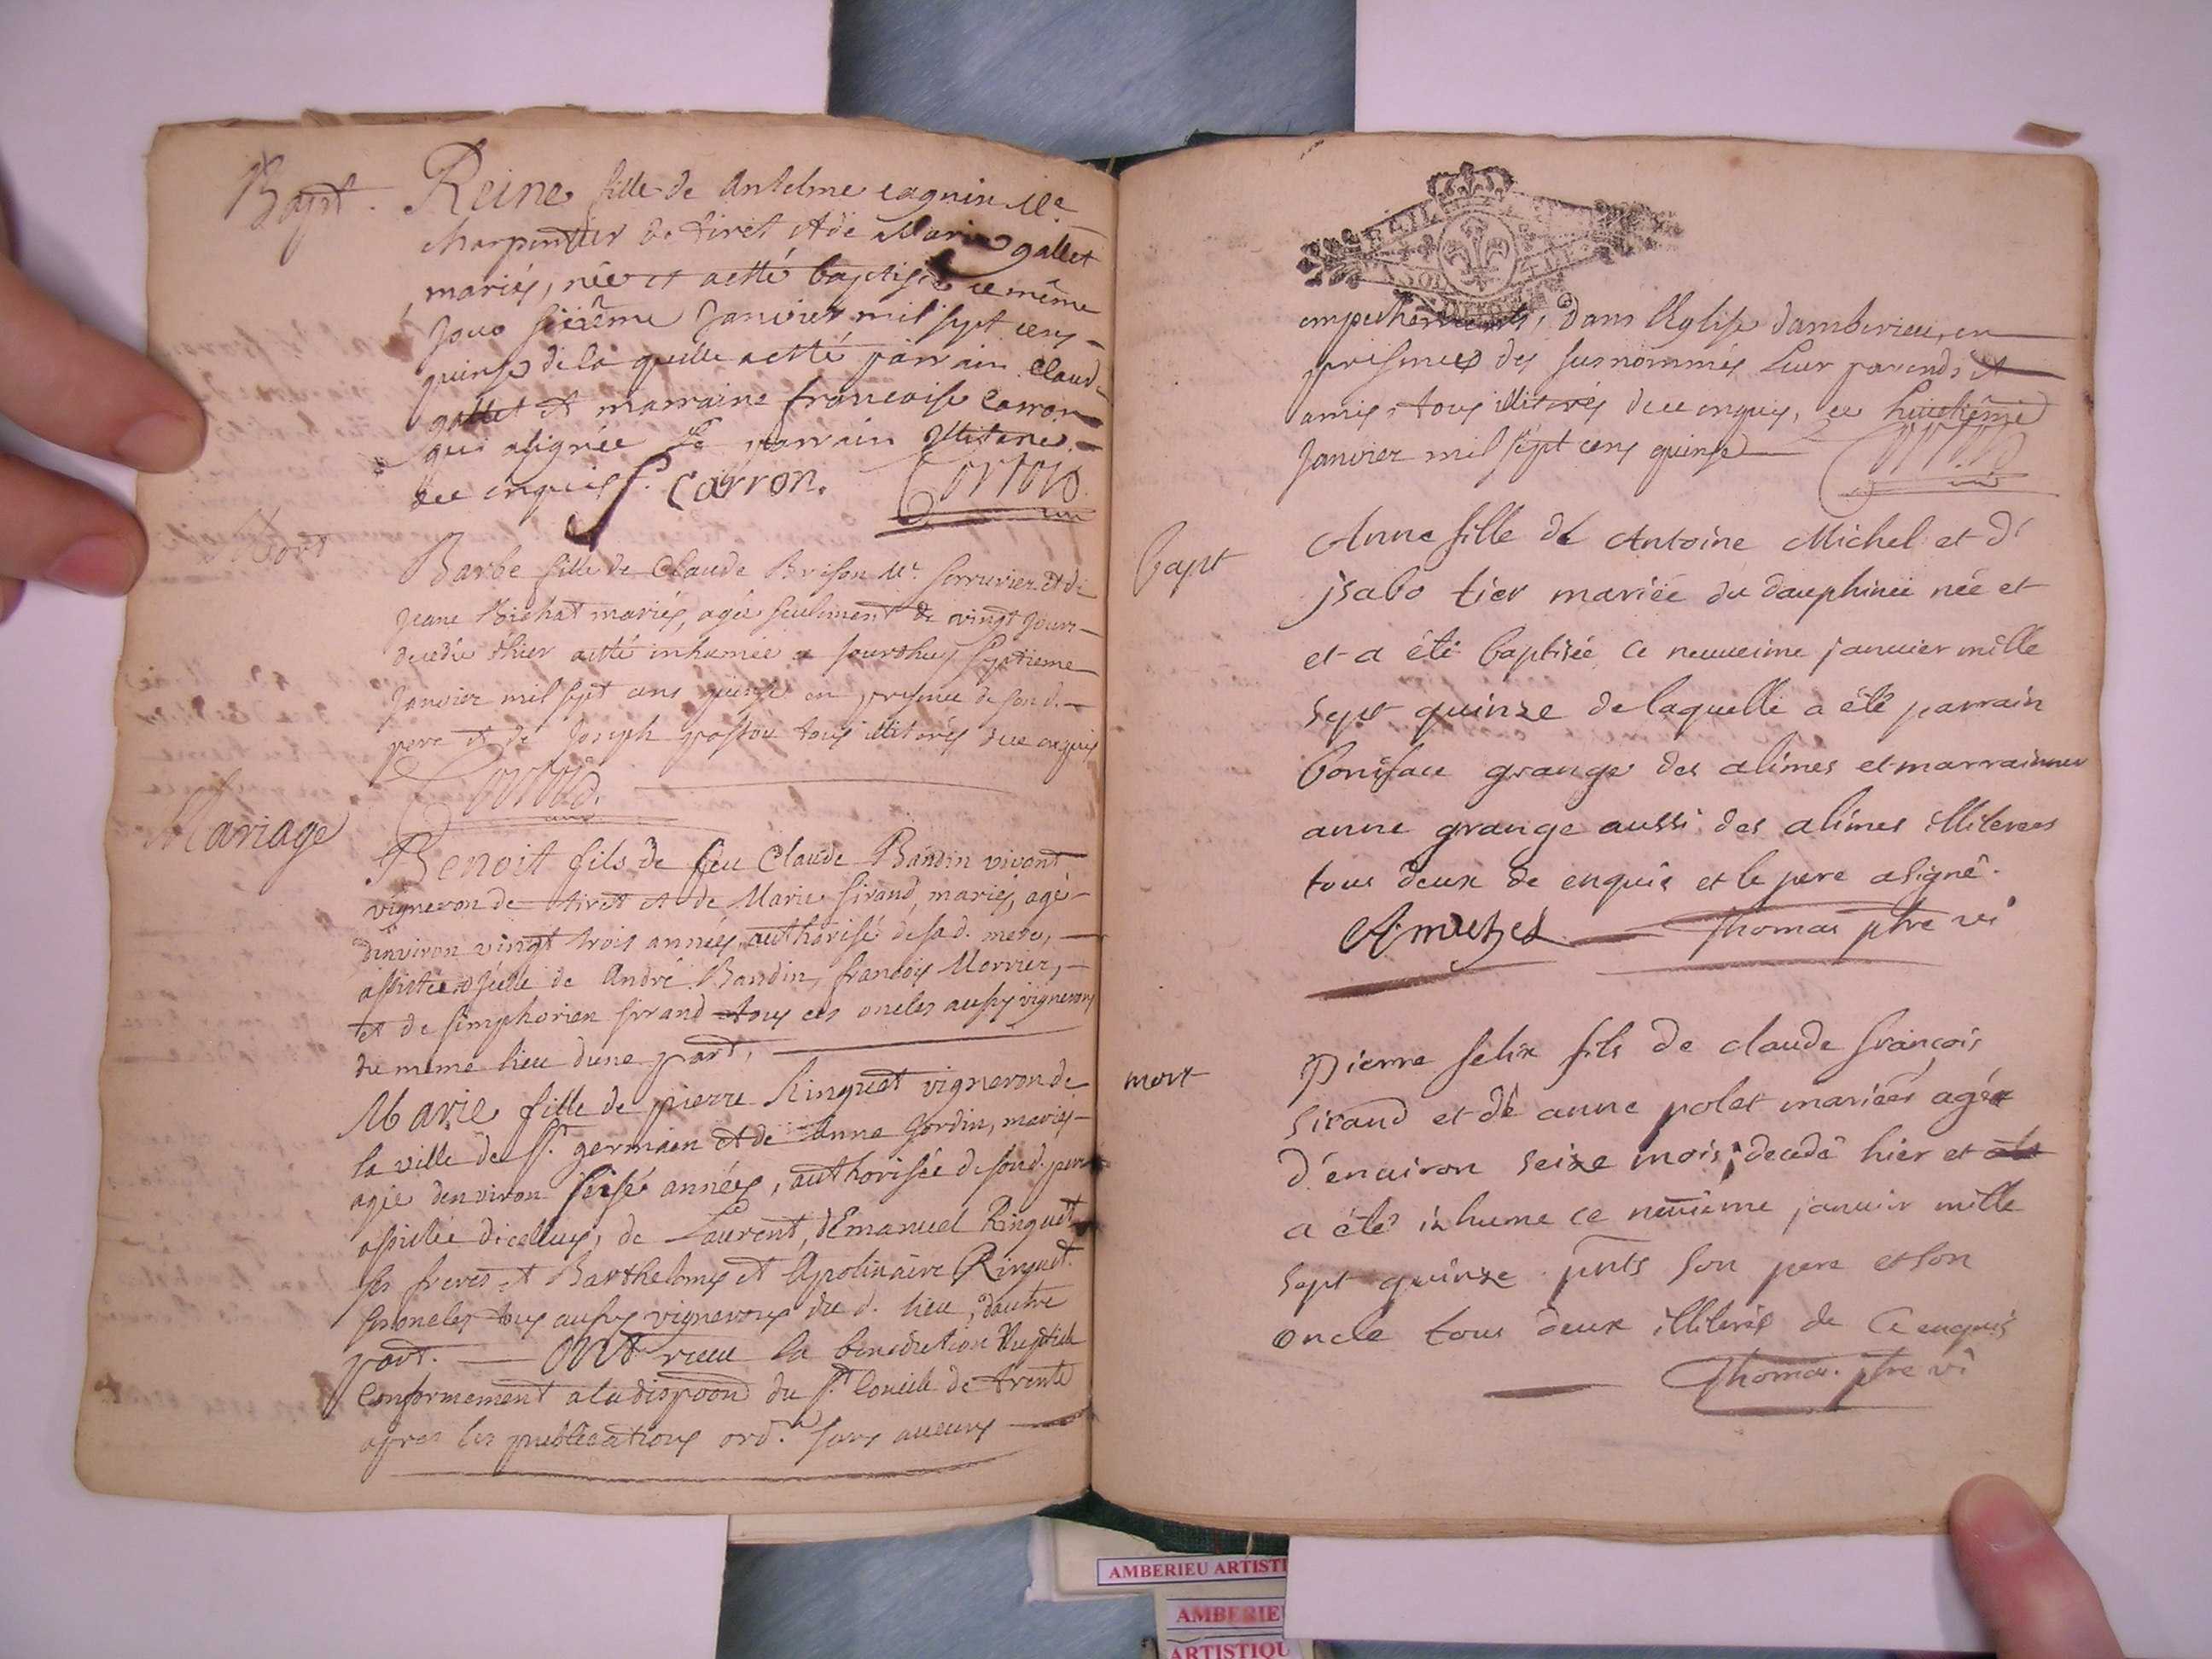 Bapt.
Reine fille de Antelme cagnin Me
charpentier de tiret et de Marie gallet
mariés, née et a esté baptisée ce même
Jour sixiême Janvier mil sept cens
quinse de la quelle a esté parrain Claude
gallet et marraine francoise carron
qui a signée le parrain illiteré
de ce enquis f. Carron.
Mort
Barbe fille de Claude Brison Me serrurier et de
Jeane Bichat mariés, agée seulement de vingt Jours
decedée d'hier a esté inhumée a Jourdhuy septieme
Janvier mil sept cens quinse en presence de son d.
pere et de Joseph tous illiterés de ce enquis
Mariage
Benoit fils de feu Claude Baudin vivant
vigneron de tiret et de Marie sirand, mariés, agé
denviron vingt trois années, authorisé de sa d. mere,
assisté d'jcelle de André Baudin, francois Morrier,
et de simphorien sirand tous ces oncles aussy vignerons
du meme lieu dune part,
Marie fille de pierre Ringuet vigneron de
la ville de st. germain et de anne Jordin, mariés
agée denviron seise années, authorisée de son d. pere
assistée dicelluy, de Laurent, d'Emanuel Ringuet
ses freres et Barthelemy et Apolinaire Ringuet
ses oncles tous aussy vignerons du d. lieu, dautre
part. Ont receu la benediction Nuptiale
conformement a la dispoon du st. Concile de trente
apres les publications ord. sans aucuns
empechements, dans l'Eglise damberieu, en
presence des susnommés leur parends et
amis, tous illiterés de ce enquis, ce huictiême
Janvier mil sept cens quinse
bapt
Anne fille de Antoine Michel et d'
jsabo tier mariée du dauphineé née et
et a été baptisée ce neuveime januier mille
sept quinze de laquelle a été parrain
boniface grange des alimes et marrainne
anne grange aussi des alimes illiterees
tous deux de enquis et le pere a signé.
Thomas ptre vi
mort
Pierre felix fils de claude françois
sirand et de anne polet mariées agée
d'enuiron seize mois decedé hier et
a étés inhume ce neuieme januir mille
sept quinze pnts son pere et son
oncle tous deux illiterés de ce enquis
Thomas ptre vi
AMBERIEU ARTISTI
AMBERIE
ARTISTIQU